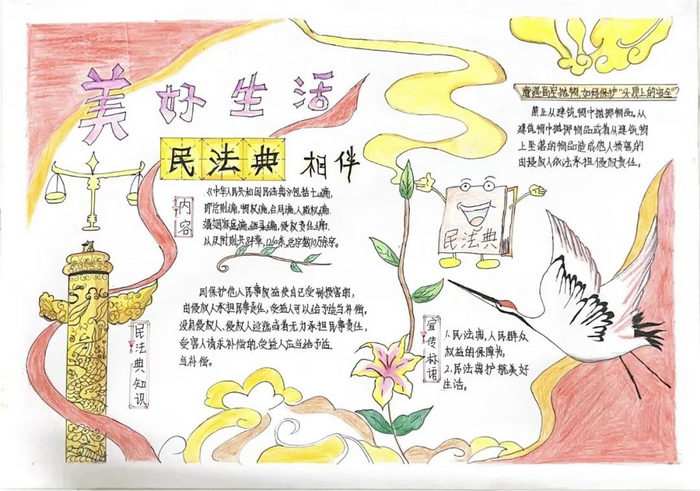 美好生活
民法典 相伴
内容
《中华人民共和国民法典》包括七编,
即总则编,物权编,合同编,人格权编,
婚姻家庭编,继承编,侵权责任编,
以及附则共84章,1260条,总字数10万余字。
因保护他人民事权益使自己受到损害的,
由侵权人承担民事责任,受益人可以给予适当补偿。
没有侵权人、侵权人逃逸或者无力承担民事责任,
受害人请求补偿的,受益人应当给予适
当补偿。
民法典知识
遭遇高空抛物,如何保护"头顶上的安全"
禁止从建筑物中抛掷物品。从
建筑物中抛掷物品或者从建筑物
上坠落的物品造成他人损害的
由侵权人依法承担侵权责任。
民法典
宣传标语
1.民法典,人民群众
权益的保障书
2.民法典护航美好
生活。